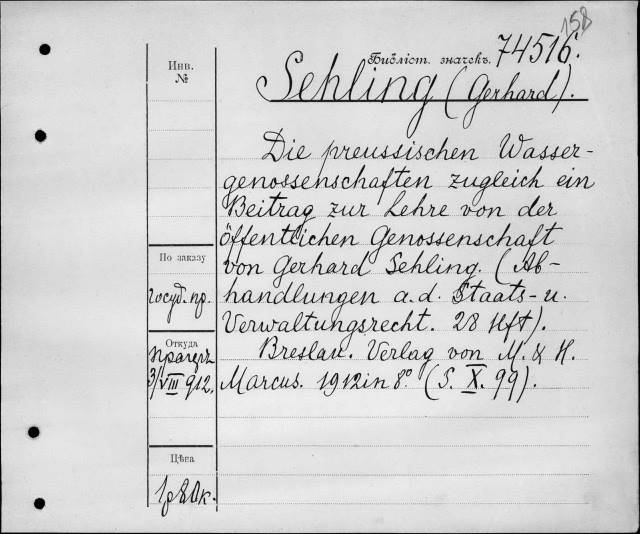 158
Библіот. значекъ. 74516.
Инв.
№
Sehling (Gerhard).
Die preussischen Wasser-
genossenschaften zugleich ein
Beitrag zur Lehre von der
öffentlichen Genossenschaft
По заказу
von Gerhard Sehling. (Ab-
госуд. пр.
handlungen a.d. Staats- u.
Verwaltungsrecht. 28 Hft).
Откуда
Прагеръ
3/VIII 912.
Breslau. Verlag von M. & H.
Marcus. 1912 in 8° (S. X. 99).
Цѣна
1р 80к.